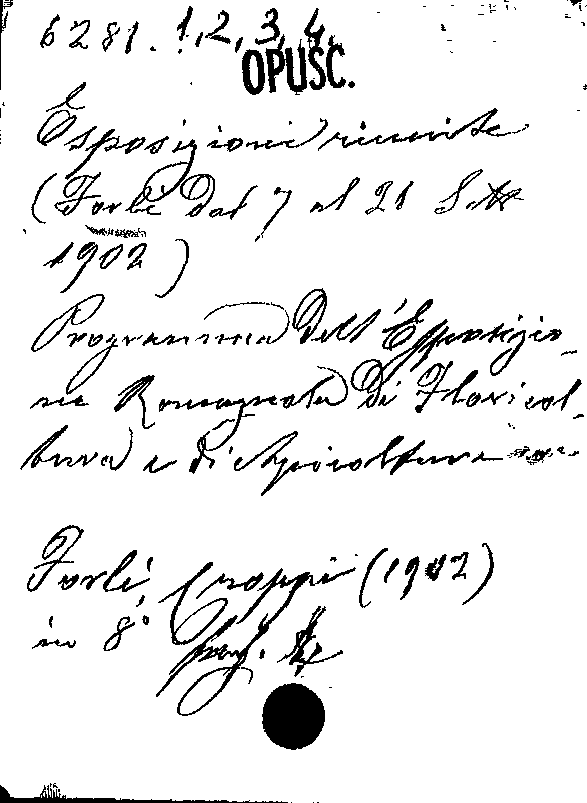 6281. 1, 2, 3, 4.
OPUSC.
Esposizioni riunite
(Forlì dal 7 al 21 Sett
1902)
Programma dell'Esposizio-
ne Romagnola di Floricol-
tura e di Apicoltura
Forlì, Croppi (1902)
in 8° pag.